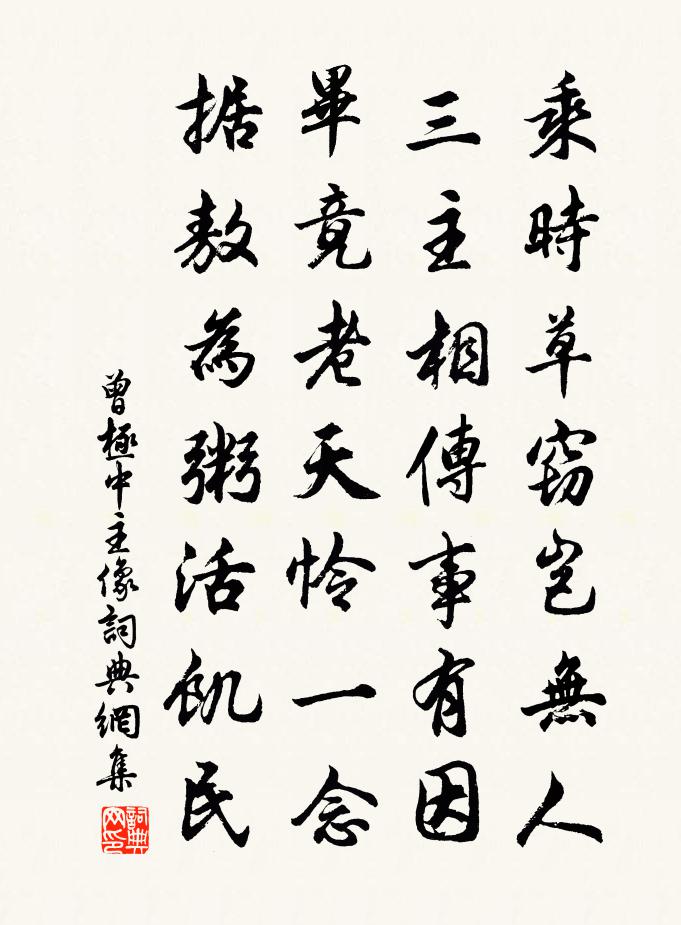 乘時草竊豈無人
三主相傳事有因
畢竟老天怜一念
据敖為粥活飢民
曾極中主像詞典網集
詞典网印